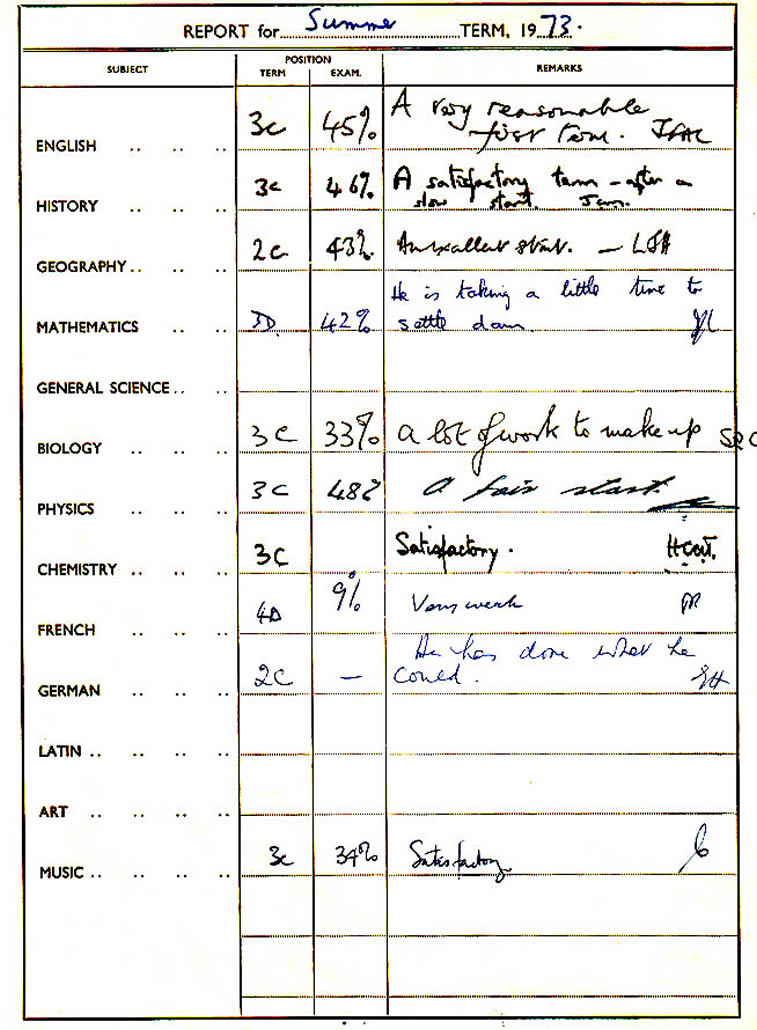 REPORT for Summer TERM, 1973.
SUBJECT POSITION REMARKS
TERM EXAM.
ENGLISH .. .. .. 3c 45% A very reasonable
first term.
HISTORY .. .. .. 3c 46% A satisfactory term - after a
slow start.
GEOGRAPHY .. .. .. 2c 43% An excellent start. -
MATHEMATICS .. .. 3D 42% He is taking a little time to
settle down.
GENERAL SCIENCE .. ..
BIOLOGY .. .. .. 3C 33% A lot of work to make up
PHYSICS .. .. .. 3C 48% A fair start.
CHEMISTRY .. .. .. 3C Satisfactory.
FRENCH .. .. .. 4D 9% Very weak
GERMAN .. .. .. 2C — He has done what he
could.
LATIN .. .. .. ..
ART .. .. .. ..
MUSIC .. .. .. .. 3c 34% Satisfactory